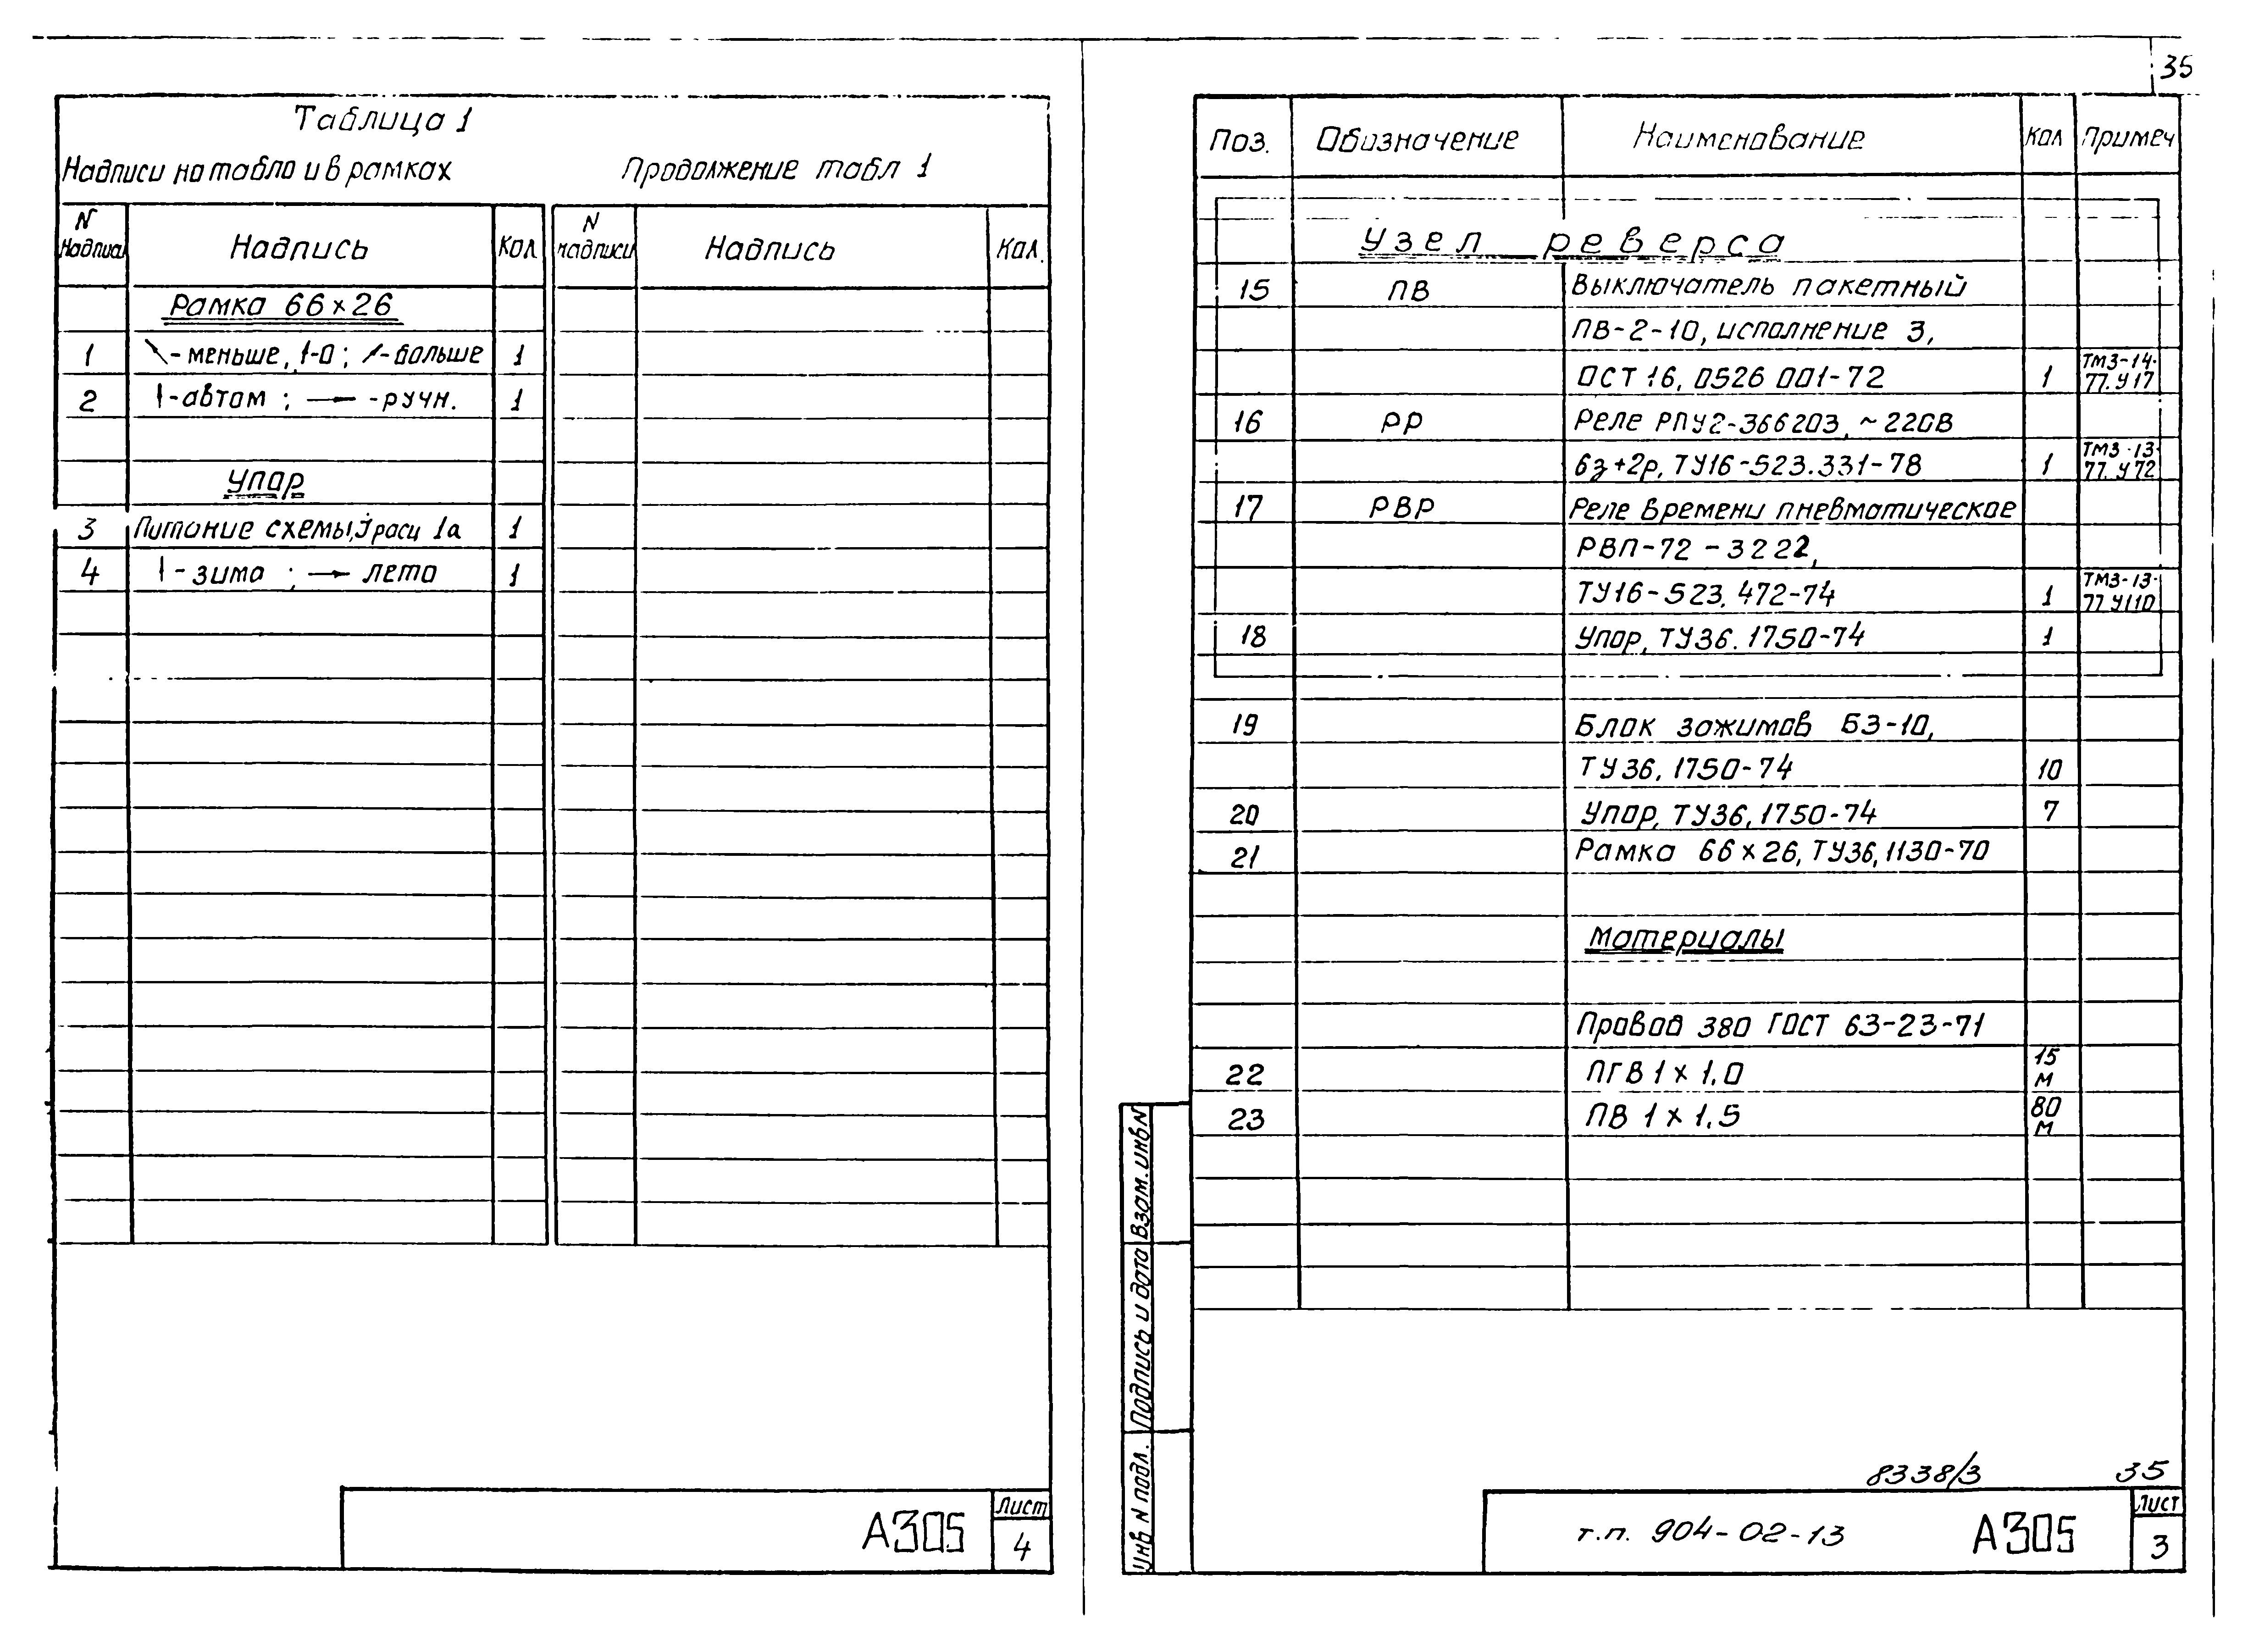 35
Таблица 1
Надписи на табло и в рамках
Продолжение табл 1
N надписи Надпись Кол N надписи Надпись Кол.
Рамка 66×26
1 - меньше, 1-0; - больше 1
2 1-автом ; → -ручн. 1
Упор
3 Питание схемы, 1а 1
4 1-зима ; → лето 1
А305
Лист
4
Поз. Обозначение Наименование Кол Примеч
Узел реверса
15 ПВ Выключатель пакетный
ПВ-2-10, исполнение 3,
ОСТ 16, 0526 001-72 1 ТМ3-14-77.У17
16 РР Реле РПУ2-366203, ~220В
6з+2р, ТУ16-523.331-78 1 ТМ3-13-77.У72
17 РВР Реле времени пневматическое
РВП-72-3222,
ТУ16-523.472-74 1 ТМ3-13-77.У110
18 Упор, ТУ36.1750-74 1
19 Блок зажимов БЗ-10,
ТУ36, 1750-74 10
20 Упор, ТУ36, 1750-74 7
21 Рамка 66×26, ТУ36, 1130-70
Материалы
Провод 380 ГОСТ 63-23-71
22 ПГВ 1×1.0 15 м
23 ПВ 1×1.5 80 м
Взам. инв N
Подпись и дата
Инв N подл.
8338/3 35
т.п. 904-02-13 А305
Лист
3